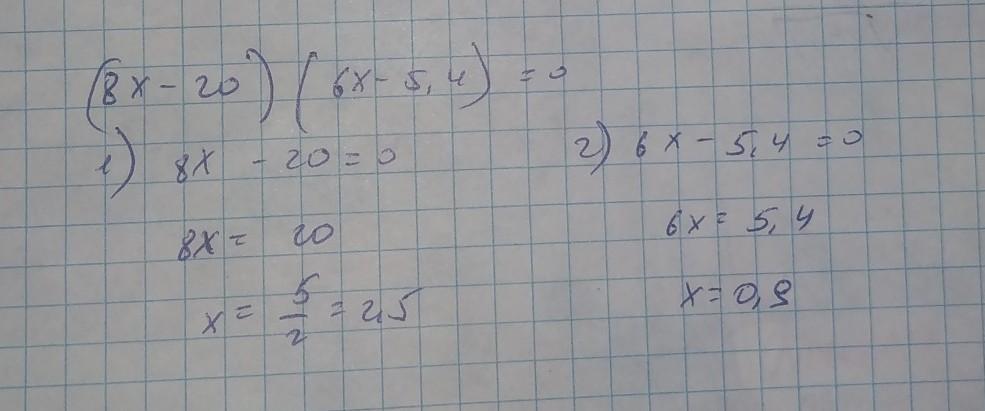 (8x - 20) (6x - 5,4) = 0
1) 8x - 20 = 0
8x = 20
x = 5/2 = 2,5
2) 6x - 5,4 = 0
6x = 5,4
x = 0,9